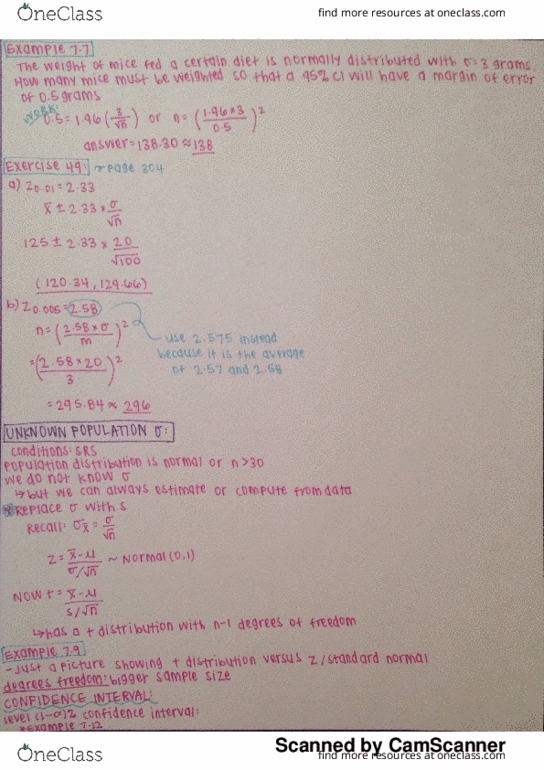 OneClass
find more resources at oneclass.com
Example 7.7
The weight of mice fed a certain diet is normally distributed with σ=3 grams.
How many mice must be weighted so that a 95% CI will have a margin of error
of 0.5 grams
WORK:
0.5 = 1.96 (3/√n) or n= (1.96×3/0.5)²
answer=138.30 ≈ 138
Exercise 49: → page 304
a) Z0.01 = 2.33
x̄ ± 2.33 × σ/√n
125 ± 2.33 × 20/√100
(120.34, 129.66)
b) Z0.005 = 2.58
n= (2.58×σ/m)²
= (2.58×20/3)²
= 295.84 ≈ 296
use 2.575 instead
because it is the average
of 2.57 and 2.58
UNKNOWN POPULATION σ:
conditions: SRS
population distribution is normal or n>30
we do not know σ
↳ but we can always estimate or compute from data
*REPLACE σ with s
Recall: σx̄ = σ/√n
Z = x̄-μ/σ/√n ~ Normal (0,1)
NOW t = x̄-μ/s/√n
↳ has a t distribution with n-1 degrees of freedom
Example 7.9
- Just a picture showing t distribution versus z/standard normal
degrees freedom: bigger sample size
CONFIDENCE INTERVAL:
level (1-α)% confidence interval:
*Example 7.12
Scanned by CamScanner
OneClass
find more resources at oneclass.com